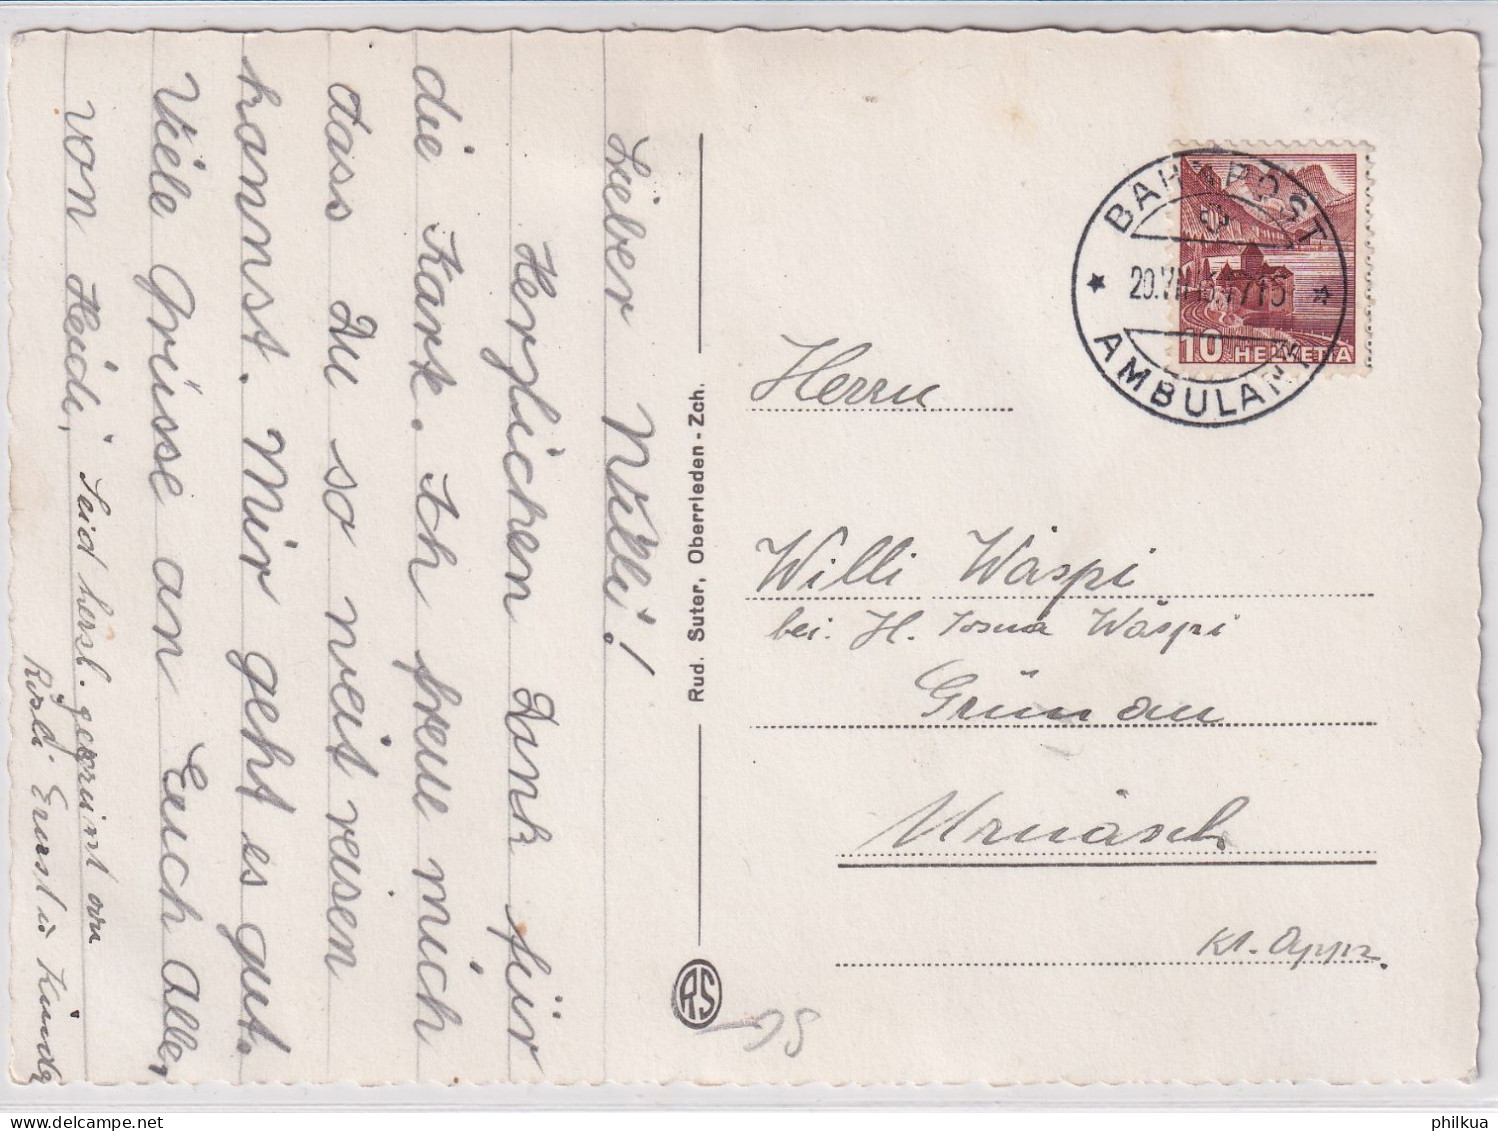 Lieber Willi!
Herzlichen Dank für
die Karte. Ich freue mich
dass Du so weit reisen
konnst. Mir geht es gut.
Viele Grüsse an Euch Alle,
von Heidi,
Seid herzl. gegrüsst von
Rösli Ernst u. Kinder
Rud. Suter, Oberrieden - Zch.
RS
BAHNPOST
20.VII 17 15
AMBULANT
10 HELVETIA
Herrn
Willi Wäspi
bei. H. Wäspi
Grünau
Urnäsch
Kt. Appz.
philkua